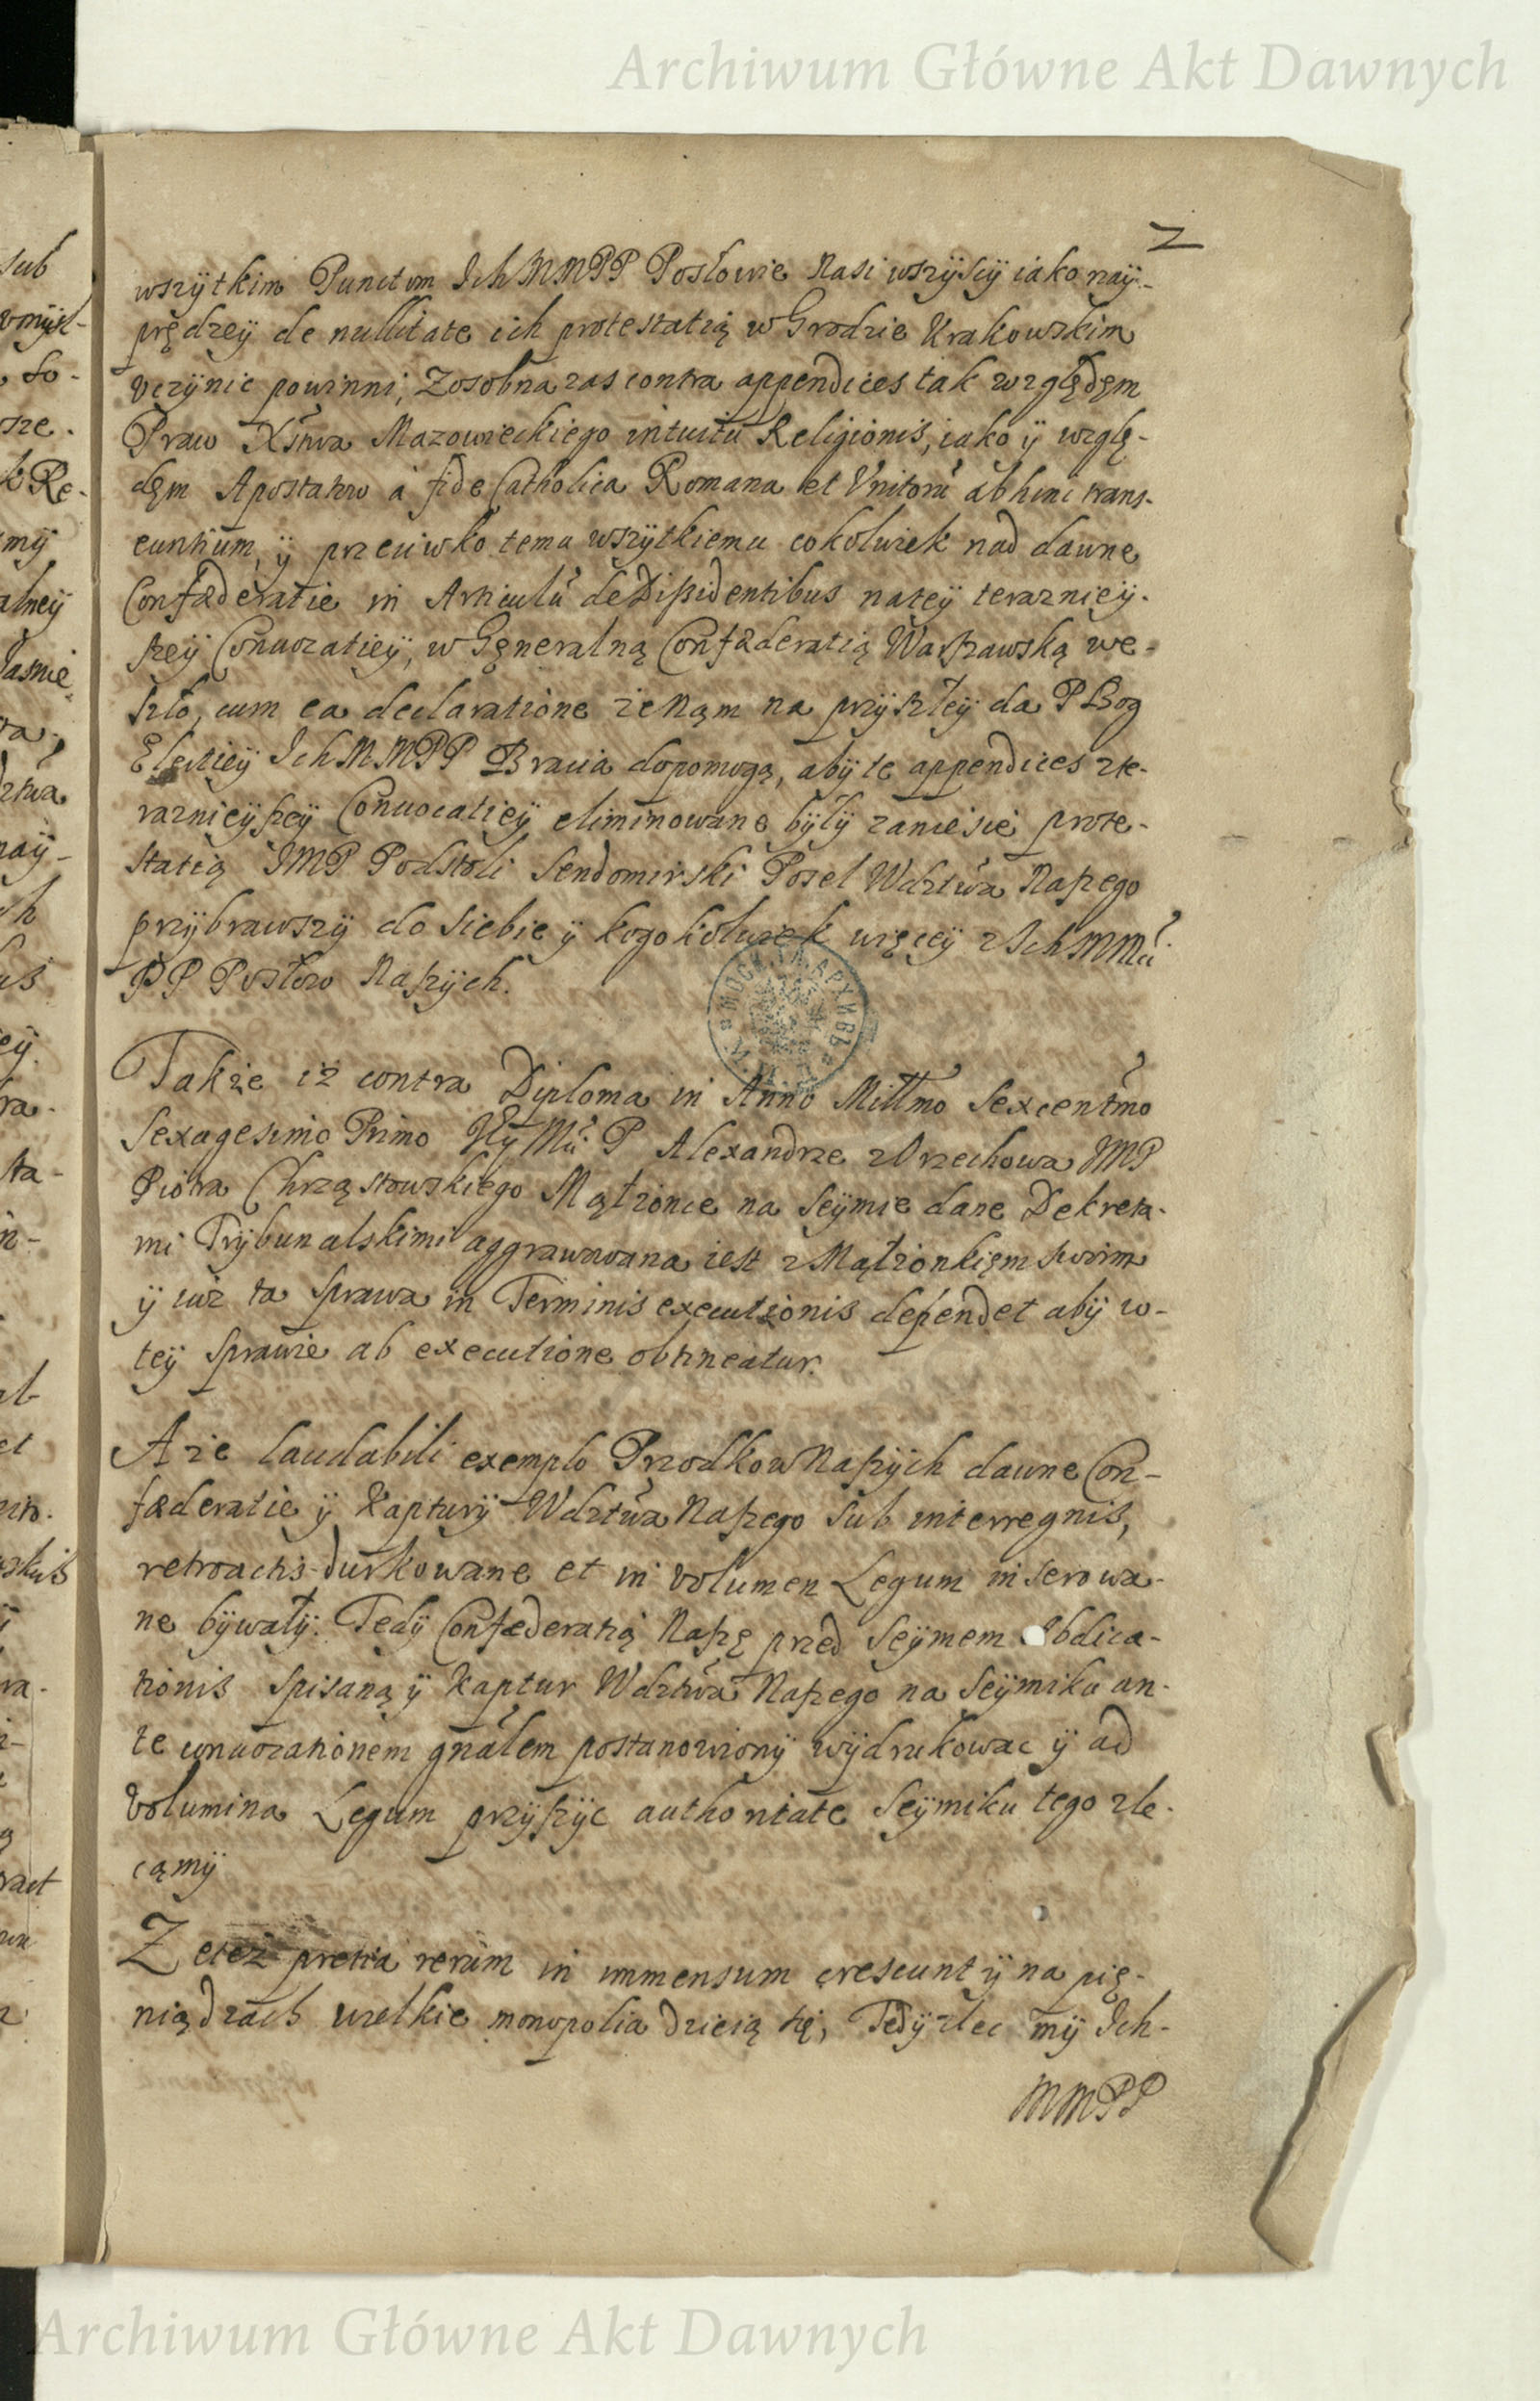 Archiwum Główne Akt Dawnych
2
wszÿtkim Punctom Ich MMPP Posłowie Nasi wszÿscÿ iako naÿ-
prędzeÿ de nullitate ich protestatią w Grodzie Krakowskim
vczÿnic powinni, Zosobna zas contra appendices tak względęm
Praw Xsťwa Mazowieckiego intuitu Religionis, iako ÿ wzglę-
dęm Apostatow a fide Catholica Romana et Vnitorũ abhinc trans-
euntium, ÿ przeciwko temu wszÿtkiemu cokolwiek nad dawne
Confæderatie in Articulũ de Dißidentibus nateÿ teraznieÿ-
szeÿ Conuocatieÿ, w Gęneralną Confæderatią Warszawską we-
szło, cum ea declaratione ze Nąm na przÿszłeÿ da P Bog
Electieÿ Ich MMPP Bracia dopomogą, abÿ te appendices zte-
raznieÿszeÿ Conuocatieÿ eliminowane bÿłÿ zaniesie prote-
statią JMP Podstoli Sendomirski Poseł Wdztwa Naszego
przÿbrawszÿ do siebie ÿ kogokolwiek więceÿ z Ich Mmciũ
PP Posłow Naszÿch.
Także iz contra Diploma in Anno Millmo Sexcentmo
Sexagesimo Primo P Alexandrze z Orzechowa JMP
Piotra Chrząstowskiego Małzonce na Seÿmie dane Dekreta-
mi Trÿbunalskimi aggrawowana iest z Małzonkięm swoim
ÿ iuz ta sprawa in Terminis executionis dependet abÿ w-
teÿ sprawie ab executione obtineatur.
A ze laudabili exemplo Przodkow Naszÿch dawne Con-
fæderatie ÿ Kapturÿ Wdztwa Naszego sub interregnis,
retroactis durkowane et in volumen Legum inserowa-
ne bÿwałÿ. Tedÿ Confæderatią Naszę przed Seÿmem Abdica-
tionis spisaną ÿ kaptur Wdztwa Naszego na Seÿmiku an-
te conuocationem gnálem postanowionÿ wÿdrukowac ÿ ad
Volumina Legum przÿszÿc authoritate Seÿmiku tego zle-
cąmÿ
Ze tez pretia rerum in immensum crescunt ÿ na pię-
niądzach wielkie monopolia dzieią się, Tedÿ zlec mÿ Ich-
MMPP
Archiwum Główne Akt Dawnych